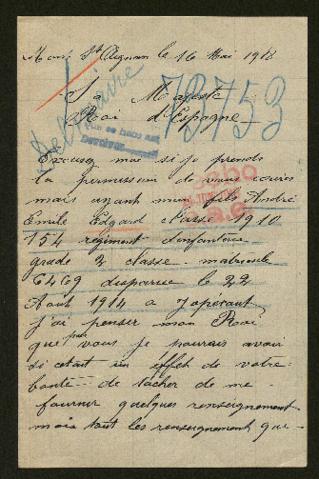 Mont St Aignan le 16 Mai 1918
Sa Majesté
Roi d'Espagne
73753
Excusez moi si je prends
la permission de vous écrire
mais ayant mon fils André
Emile Edgard classe 1910
154 régiment d'infanterie
grade 2 classe matricule
6469 disparue le 22
Août 1914 a
j'ai penser mon Roi
que par vous je pourrais avoir
si cetait un effet de votre
bonté de tacher de me
fournir quelques renseignement
mais tout les renseignement que